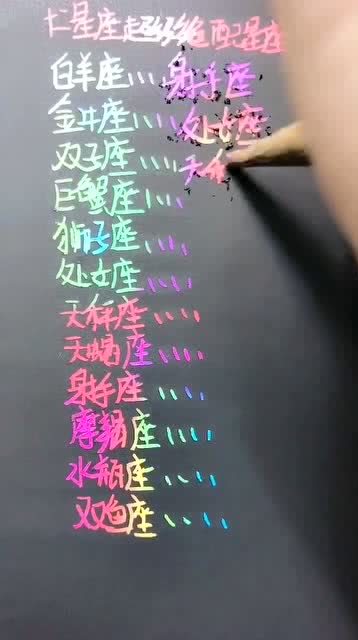 十二星座超级绝配星座
白羊座、、、射手座
金牛座、、、、处女座
双子座、、、、天秤
巨蟹座、、、
狮子座、、、
处女座、、、
天秤座、、、、
天蝎座、、、、
射手座、、、、
摩羯座、、、、
水瓶座、、、、
双鱼座、、、、